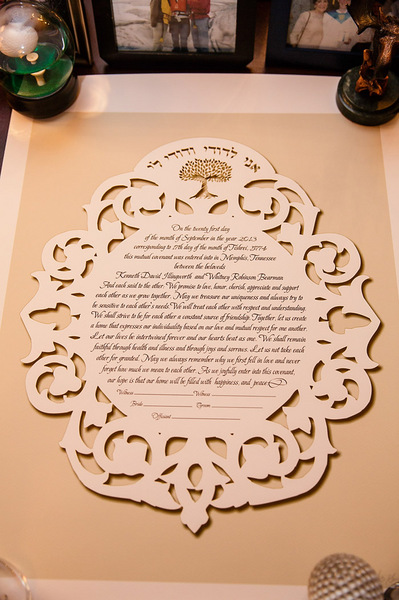 אני לדודי ודודי לי
On the twenty first day
of the month of September in the year 2013
corresponding to 17th day of the month of Tishrei, 5774
this mutual covenant was entered into in Memphis, Tennessee
between the beloveds
Kenneth David Illingworth and Whitney Robinson Bearman
And each said to the other: We promise to love, honor, cherish, appreciate and support
each other as we grow together. May we treasure our uniqueness and always try to
be sensitive to each other's needs. We will treat each other with respect and understanding.
We shall strive to be for each other a constant source of friendship. Together, let us create
a home that expresses our individuality based on our love and mutual respect for one another.
Let our lives be intertwined forever and our hearts beat as one. We shall remain
faithful through health and illness and through joys and sorrows. Let us not take each
other for granted. May we always remember why we first fell in love and never
forget how much we mean to each other. As we joyfully enter into this covenant,
our hope is that our home will be filled with happiness, and peace
Witness Witness
Bride Groom
Officiant